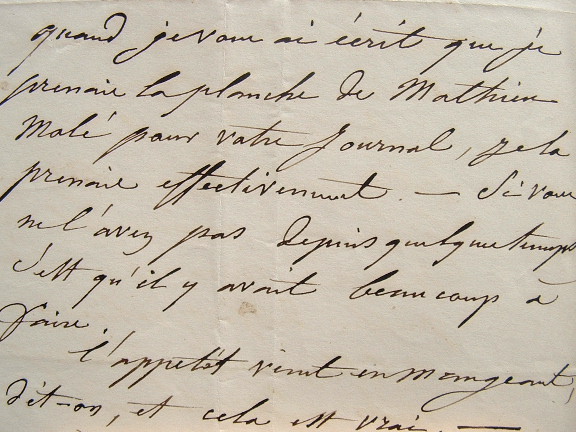 quand je vous ai écrit que je
prenais la planche de Mathieu
Molé pour votre Journal, je la
prenais effectivement. — Si vous
ne l'avez pas depuis quelque temps
c'est qu'il y avait beaucoup à
faire.
l'appétit vient en mangeant,
dit-on, et cela est vrai. —